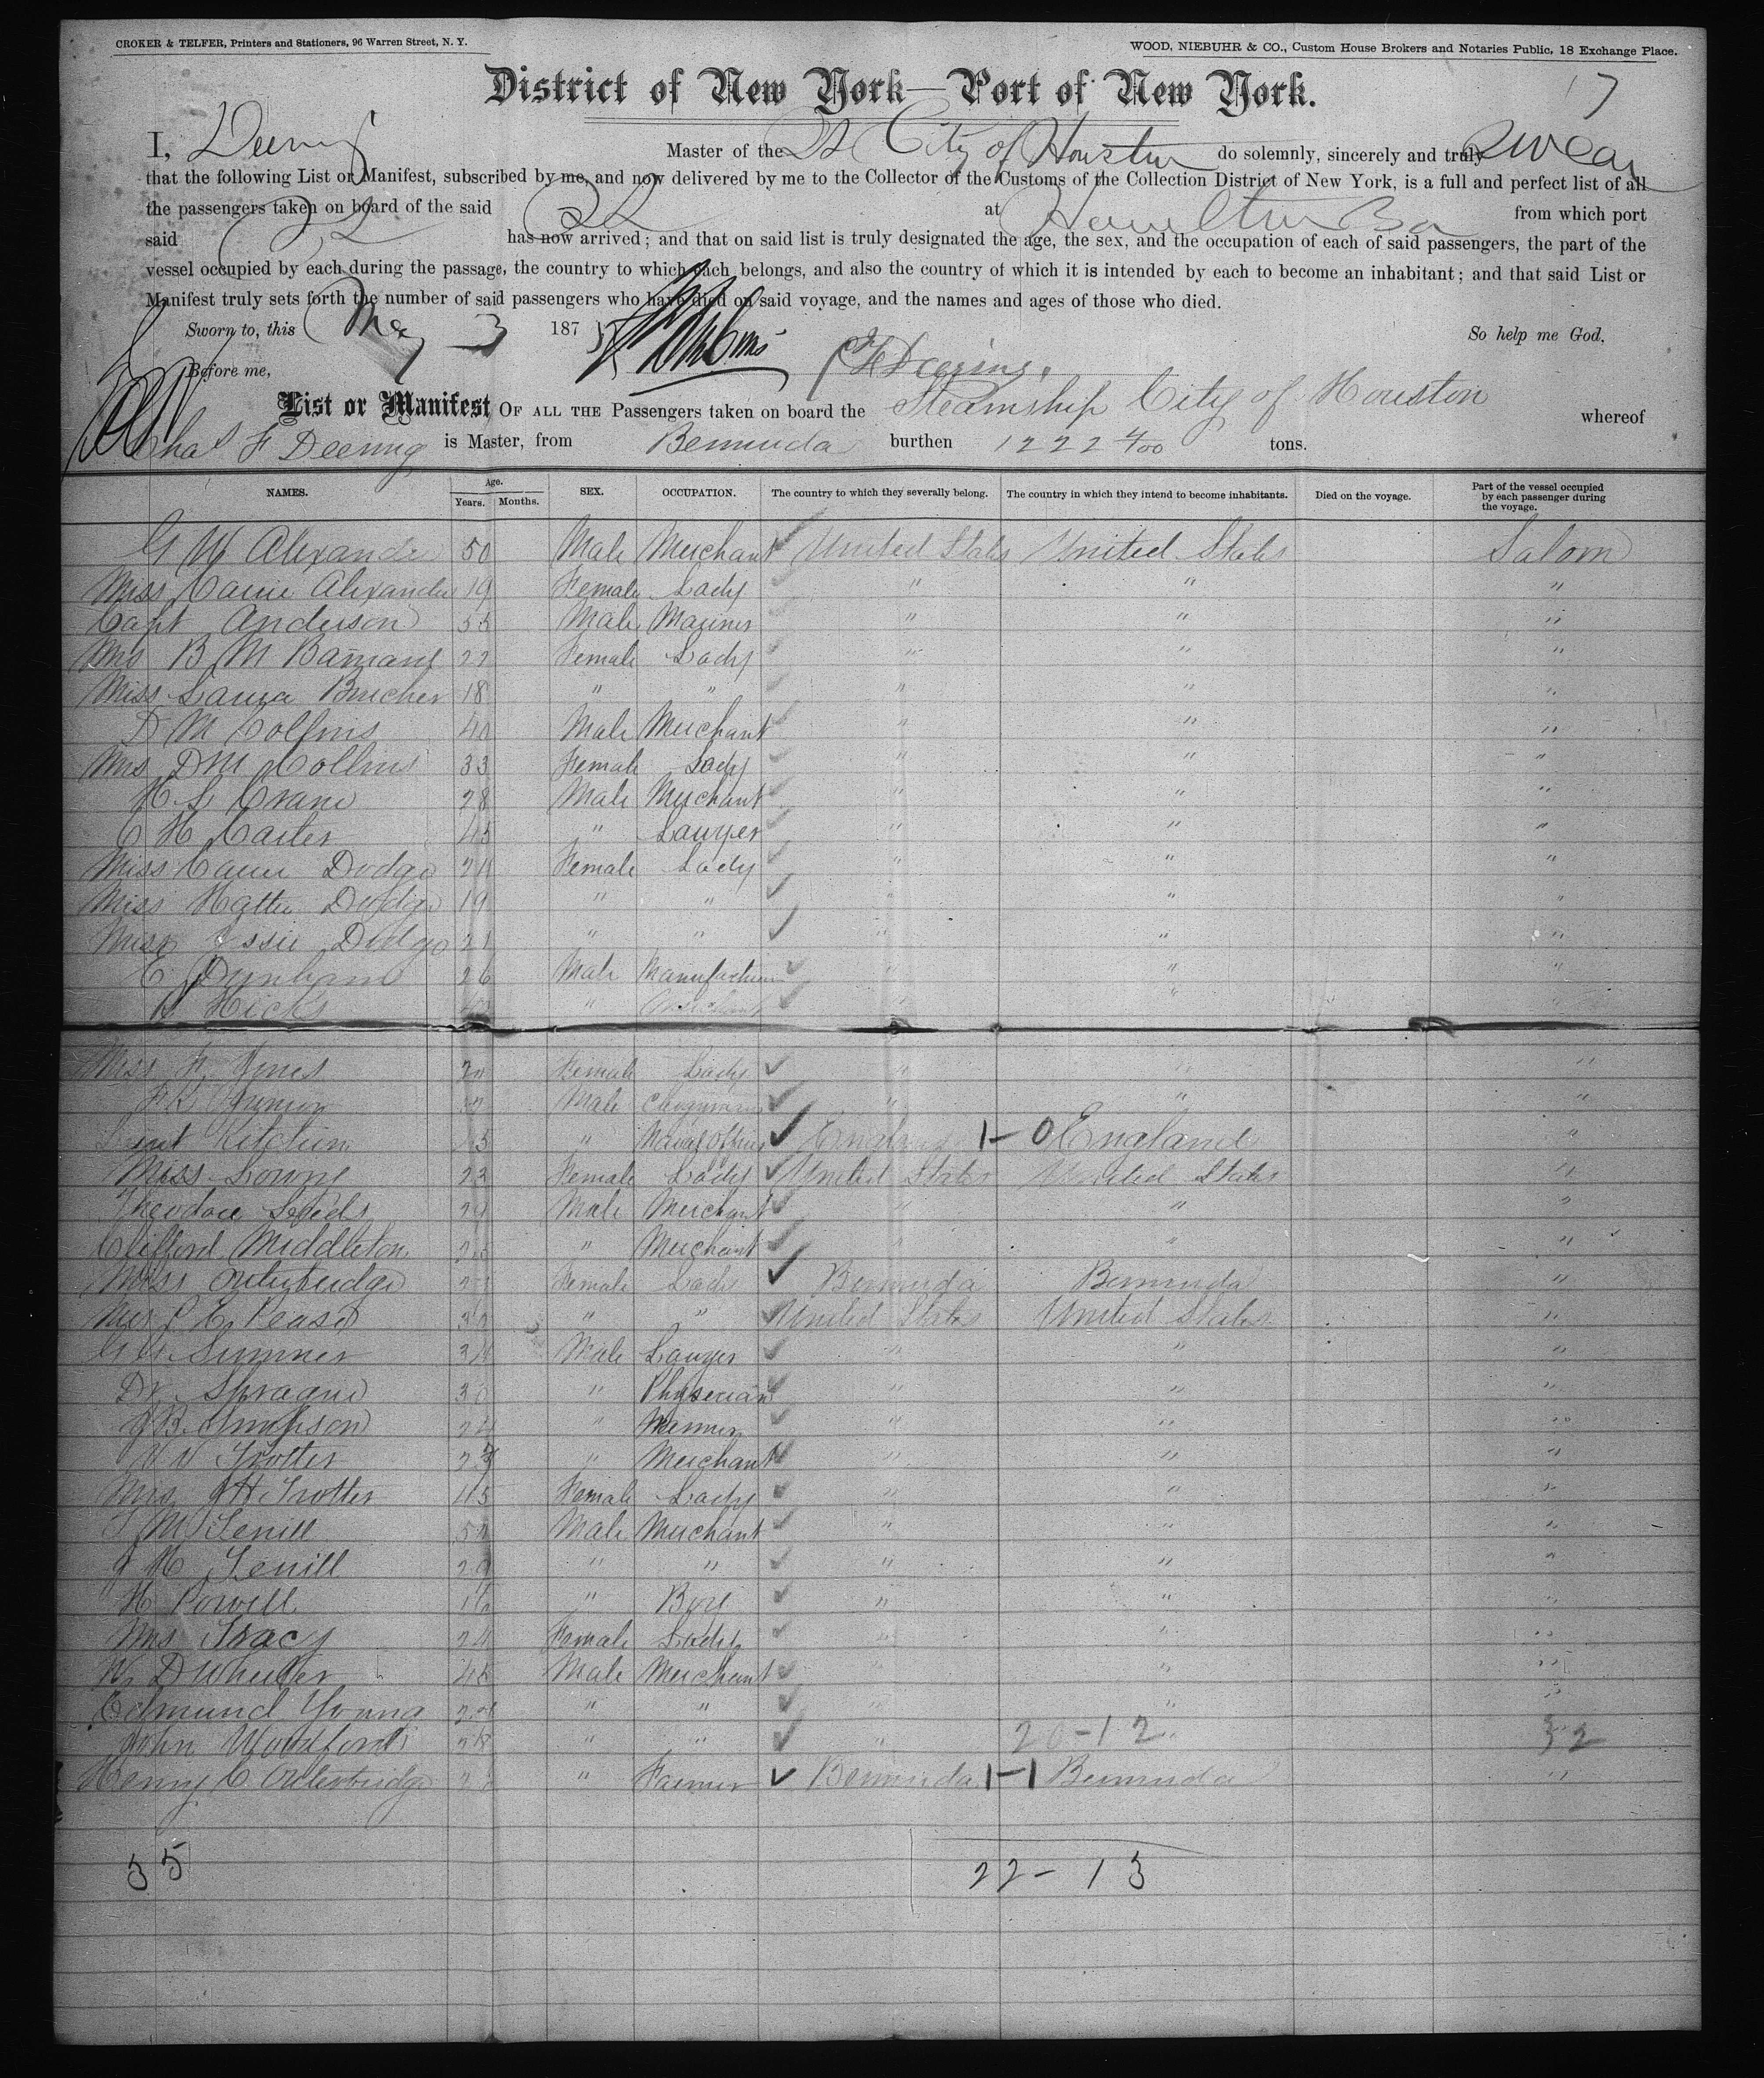 CROKER & TELFER, Printers and Stationers, 96 Warren Street, N. Y.
WOOD, NIEBUHR & CO., Custom House Brokers and Notaries Public, 18 Exchange Place.
17
District of New York—Port of New York.
I, Deering Master of the SS City of Houston do solemnly, sincerely and truly swear
that the following List or Manifest, subscribed by me, and now delivered by me to the Collector of the Customs of the Collection District of New York, is a full and perfect list of all
the passengers taken on board of the said SS at Hamilton Ba from which port
said SS has now arrived; and that on said list is truly designated the age, the sex, and the occupation of each of said passengers, the part of the
vessel occupied by each during the passage, the country to which each belongs, and also the country of which it is intended by each to become an inhabitant; and that said List or
Manifest truly sets forth the number of said passengers who have died on said voyage, and the names and ages of those who died.
Sworn to, this May 3 1875 So help me God,
Before me, C F Deering.
List or Manifest OF ALL THE Passengers taken on board the Steamship City of Houston whereof
Chas F Deering is Master, from Bermuda burthen 1222 4/100 tons.
NAMES. Age. Years. Months. SEX. OCCUPATION. The country to which they severally belong. The country in which they intend to become inhabitants. Died on the voyage. Part of the vessel occupied by each passenger during the voyage.
G W Alexander 50 Male Merchant United States United States Saloon
Miss Carrie Alexander 19 Female Lady " " "
Capt Anderson 55 Male Mariner " " "
Mrs B M 22 Female Lady " " "
Miss Laura 18 " " " " "
D M Collins 40 Male Merchant " " "
Mrs D M Collins 33 Female Lady " " "
H S Crane 28 Male Merchant " " "
C H Carter 45 " Lawyer " " "
Miss Carrie Dodge 24 Female Lady " " "
Miss Hattie Dodge 19 " " " " "
Miss Essie Dodge 21 " " " " "
E Dunham 26 Male Manufacturer " " "
Hicks " Merchant " " "
Miss F Jones Female Lady " " "
Male " " "
Lieut Kitchin " Naval Officer England 1-0 England "
Miss Lowny 23 Female Lady United States United States "
Theodore Male Merchant " " "
Clifford Middleton " Merchant " " "
Miss Outerbridge Female Lady Bermuda Bermuda "
P E Pease 30 " " United States United States "
G G Sumner 34 Male Lawyer " " "
Dr Sprague 30 " Physician " " "
J B Simpson 24 " " " "
W N Trotter " Merchant " " "
Mrs J H Trotter 45 Female Lady " " "
Male Merchant " " "
" " " " "
H Powell 16 " Boy " " "
Mrs Tracy 24 Female Lady " " "
W D Wheeler 45 Male Merchant " " "
Edmund Young " " " " "
John Woodford " " " 20-12 32
Henry C Outerbridge " Farmer Bermuda 1-1 Bermuda "
35 22-13